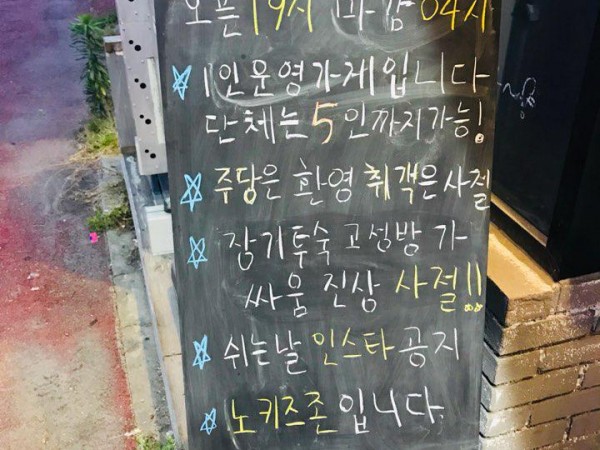 오픈 19시 마감 04시
1인운영가게입니다
단체는 5인까지가능!
주당은 환영 취객은 사절
장기투숙 고성방가
싸움 진상 사절!!
쉬는날 인스타공지
노키즈존입니다